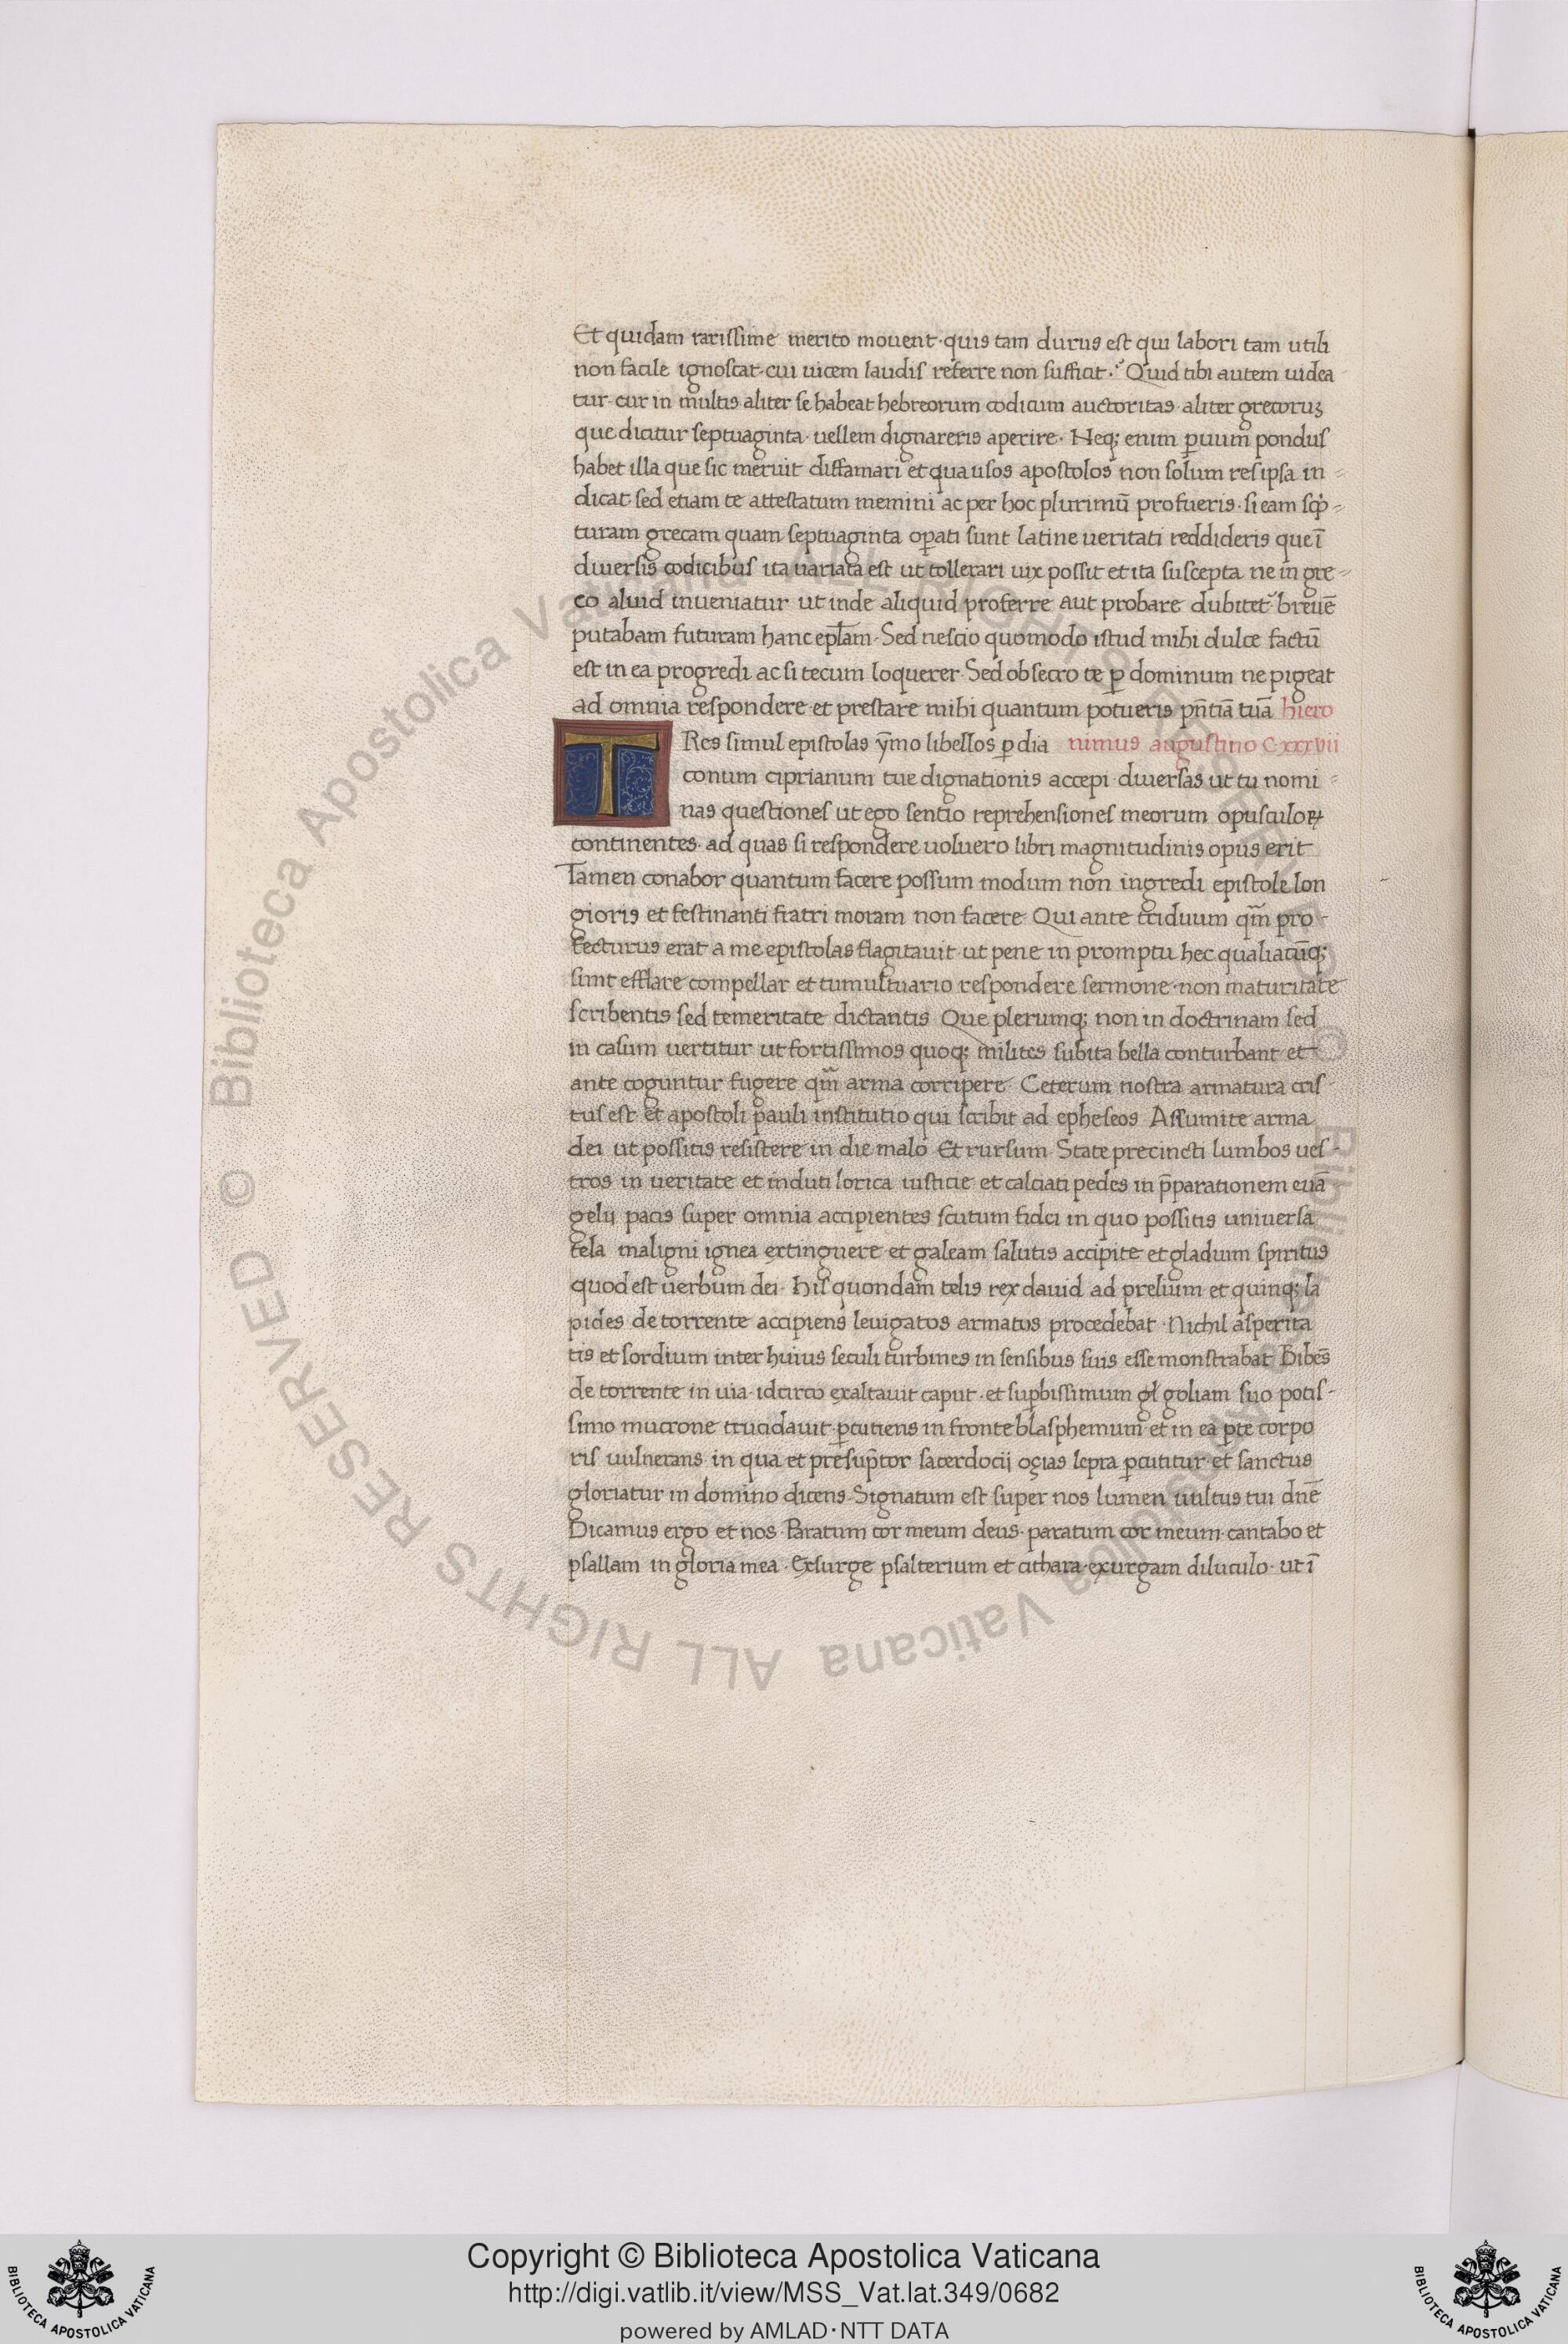 Et quidam rarissime merito mouent · quis tam durus est qui labori tam utili
non facile ignoscat · cui uicem laudis referre non sufficit ·? Quid tibi autem uidea
tur · cur in multis aliter se habeat hebreorum codicum auctoritas · aliter grecoruꝫ
que dicitur septuaginta · uellem dignareris aperire · Neqꝫ enim ꝑuum pondus
habet illa que sic meruit diffamari et qua usos apostolos non solum res ipsa in=
dicat sed etiam te attestatum memini ac per hoc plurimū profueris · si eam sc̓p=
turam grecam quam septuaginta oꝑati sunt latine ueritati reddideris que ī
diuersis codicibus ita uariata est ut tollerari uix possit et ita suscepta ne in gre=
co aliud inueniatur ut inde aliquid proferre aut probare dubitet · breuē
putabam futuram hanc epl̄am · Sed nescio quomodo istud mihi dulce factū
est in ea progredi ac si tecum loquerer · Sed obsecro te ꝑ dominum ne pigeat
ad omnia respondere et prestare mihi quantum potueris pn̄tiā tuā hiero
TRes simul epistolas ȳmo libellos ꝑ dia nimus augustino Cxxxvii
conum ciprianum tue dignationis accepi · diuersas ut tu nomi=
nas questiones ut ego sentio reprehensiones meorum opusculoꝝ
continentes · ad quas si respondere uoluero libri magnitudinis opus erit
Tamen conabor quantum facere possum modum non ingredi epistole lon
gioris et festinanti fratri moram non facere · Qui ante triduum qm̄ pro-
fecturus erat a me epistolas flagitauit · ut pene in promptu hec qualiacūqꝫ
sunt efflare compellar et tumultuario respondere sermone · non maturitate
scribentis sed temeritate dictantis · Que plerumqꝫ non in doctrinam sed
in casum uertitur ut fortissimos quoqꝫ milites subita bella conturbant et
ante coguntur fugere qm̄ arma corripere · Ceterum nostra armatura cris-
tus est et apostoli pauli institutio qui scribit ad epheseos · Assumite arma
dei ut possitis resistere in die malo · Et rursum · State precincti lumbos ues-
tros in ueritate et induti lorica iusticie et calciati pedes in p̄parationem euā
gelij pacis super omnia accipientes scutum fidei in quo possitis uniuersa
tela maligni ignea extinguere et galeam salutis accipite et gladium spiritus
quod est uerbum dei · His quondam telis rex dauid ad prelium et quinqꝫ la
pides de torrente accipiens leuigatos armatus procedebat · Nichil asperita
tis et sordium inter huius seculi turbines in sensibus suis esse monstrabat Bibēs
de torrente in uia · idcirco exaltauit caput · et suꝑbissimum gl goliam suo potis-
simo mucrone trucidauit · ꝑcutiens in fronte blasphemum et in ea ꝑte corpo
ris uulnerans in qua et presūptor sacerdocij oçias lepra ꝑcutitur et sanctus
gloriatur in domino dicens · Signatum est super nos lumen uultus tui dn̄e
Dicamus ergo et nos · Paratum cor meum deus · paratum cor meum · cantabo et
psallam in gloria mea · Exsurge psalterium et cithara · exurgam diluculo · ut ī
© Biblioteca Apostolica Vaticana ALL RIGHTS RESERVED © Biblioteca Apostolica Vaticana ALL RIGHTS RESERVED
Copyright © Biblioteca Apostolica Vaticana
http://digi.vatlib.it/view/MSS_Vat.lat.349/0682
powered by AMLAD·NTT DATA
BIBLIOTECA APOSTOLICA VATICANA
BIBLIOTECA APOSTOLICA VATICANA